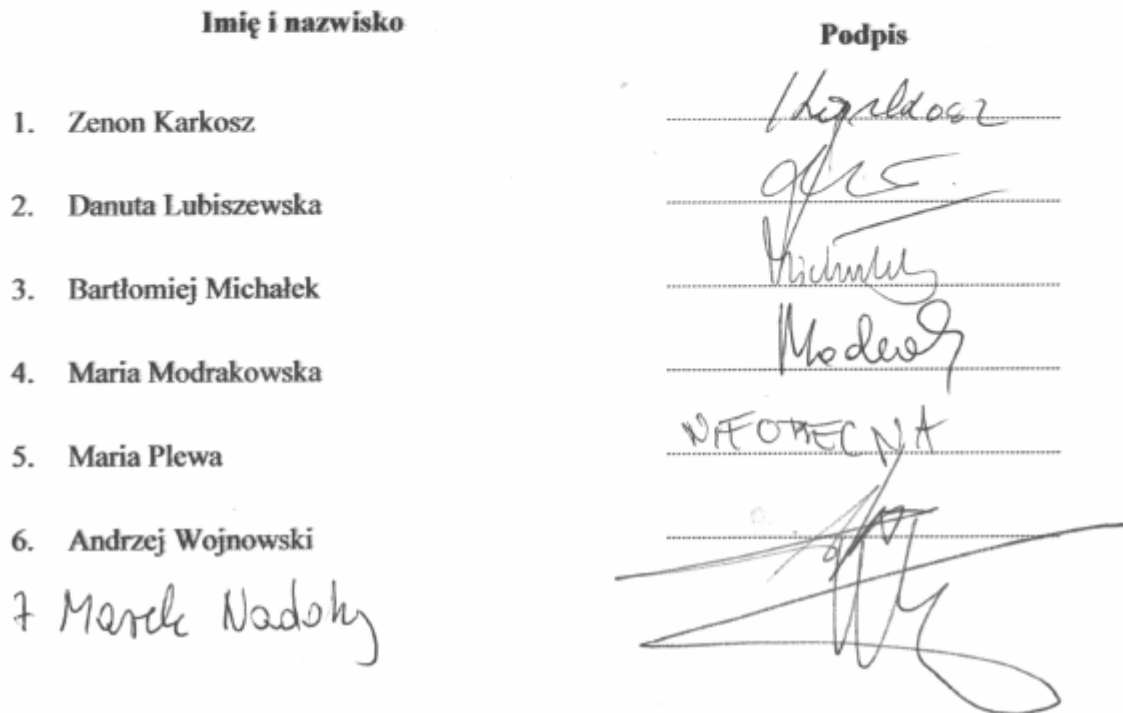 Imię i nazwisko Podpis
1. Zenon Karkosz Karkosz
2. Danuta Lubiszewska
3. Bartłomiej Michałek
4. Maria Modrakowska
5. Maria Plewa NIEOBECNA
6. Andrzej Wojnowski
7 Marek Nadolny